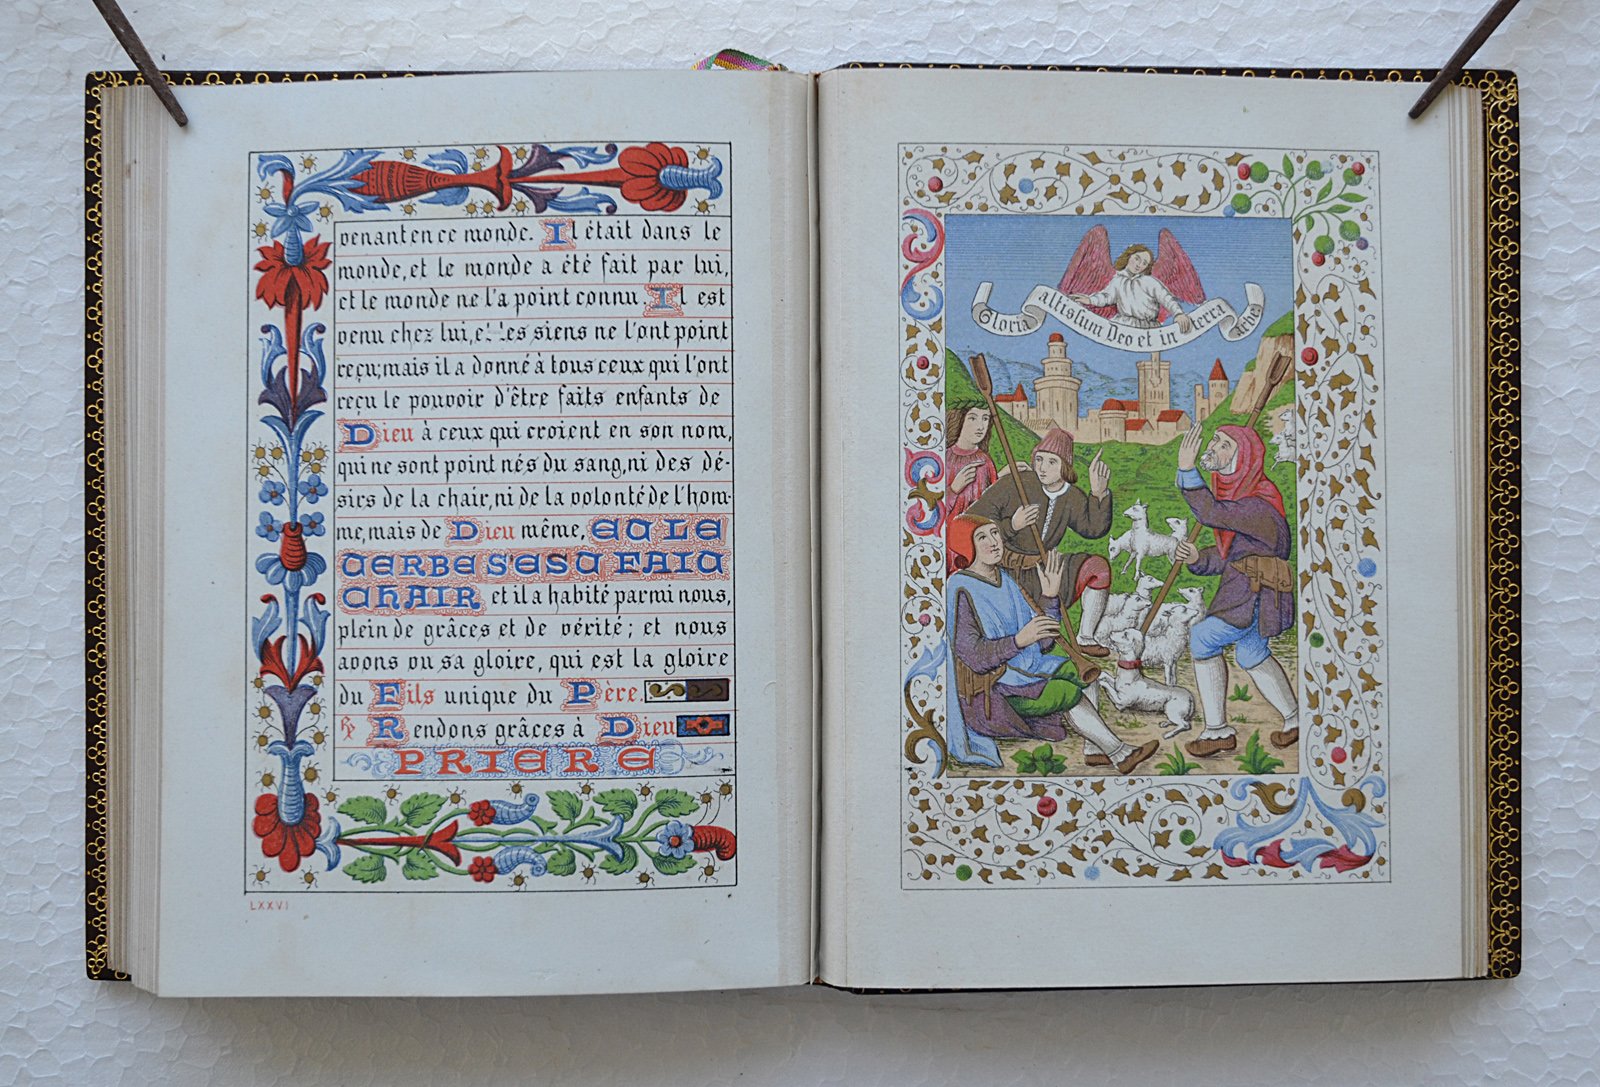 venant en ce monde. Il était dans le
monde, et le monde a été fait par lui,
et le monde ne l'a point connu. Il est
venu chez lui, et les siens ne l'ont point
reçu; mais il a donné à tous ceux qui l'ont
reçu le pouvoir d'être faits enfants de
Dieu à ceux qui croient en son nom,
qui ne sont point nés du sang, ni des dé-
sirs de la chair, ni de la volonté de l'hom-
me, mais de Dieu même, ET LE
VERBE S'EST FAIT
CHAIR et il a habité parmi nous,
plein de grâces et de vérité; et nous
avons vu sa gloire, qui est la gloire
du Fils unique du Père.
℟ Rendons grâces à Dieu
PRIERE
LXXVI
Gloria altissum Deo et in terra